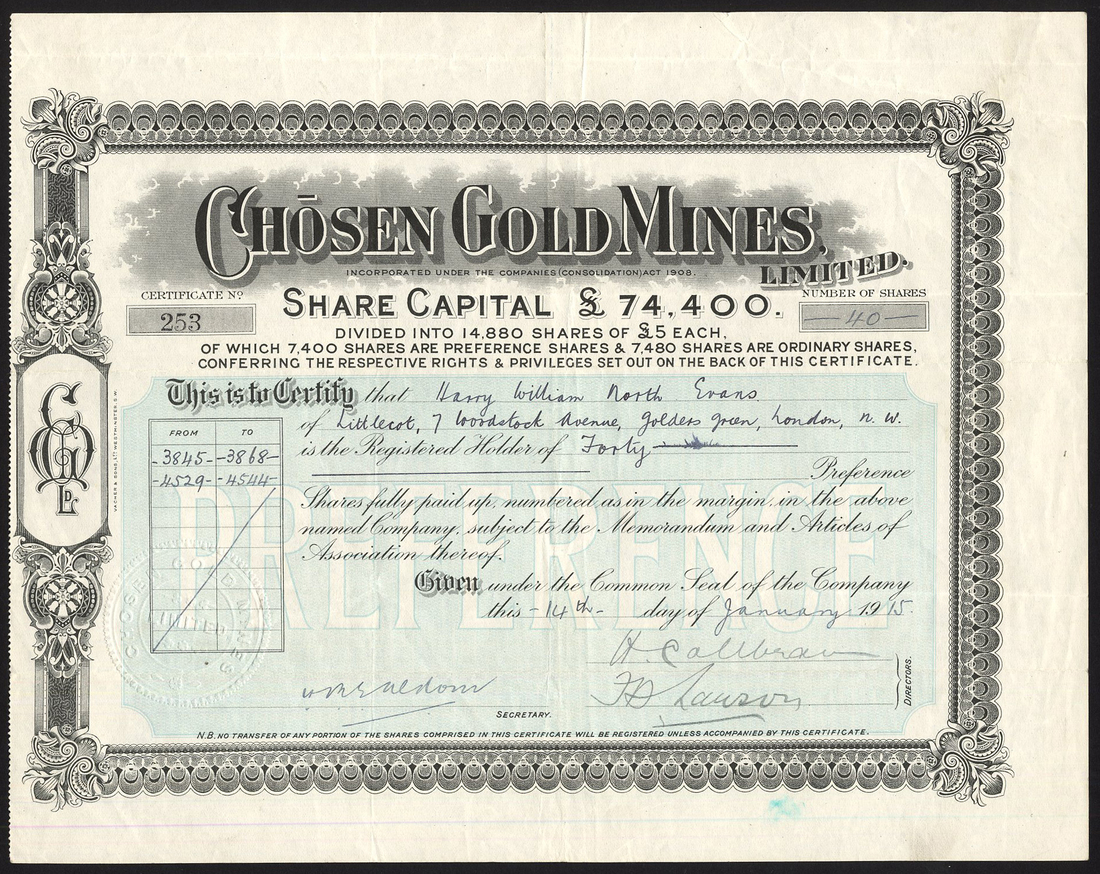 CHŌSEN GOLD MINES,
LIMITED.
INCORPORATED UNDER THE COMPANIES (CONSOLIDATION) ACT 1908.
CERTIFICATE Nº
253
SHARE CAPITAL £ 74,400.
NUMBER OF SHARES
— 40 —
DIVIDED INTO 14,880 SHARES OF £5 EACH,
OF WHICH 7,400 SHARES ARE PREFERENCE SHARES & 7,480 SHARES ARE ORDINARY SHARES,
CONFERRING THE RESPECTIVE RIGHTS & PRIVILEGES SET OUT ON THE BACK OF THIS CERTIFICATE.
This is to Certify that Harry William North Evans
of Littlecot, 7 Woodstock Avenue, Golders Green, London, N.W.
is the Registered Holder of Forty
Preference
Shares fully paid up, numbered as in the margin, in the above
named Company, subject to the Memorandum and Articles of
Association thereof.
Given under the Common Seal of the Company
this -14th- day of January 1915.
FROM TO
-3845- -3868-
-4529- -4544-
PREFERENCE
CHOSEN GOLD MINES
LIMITED
DIRECTORS.
SECRETARY.
N.B. NO TRANSFER OF ANY PORTION OF THE SHARES COMPRISED IN THIS CERTIFICATE WILL BE REGISTERED UNLESS ACCOMPANIED BY THIS CERTIFICATE.